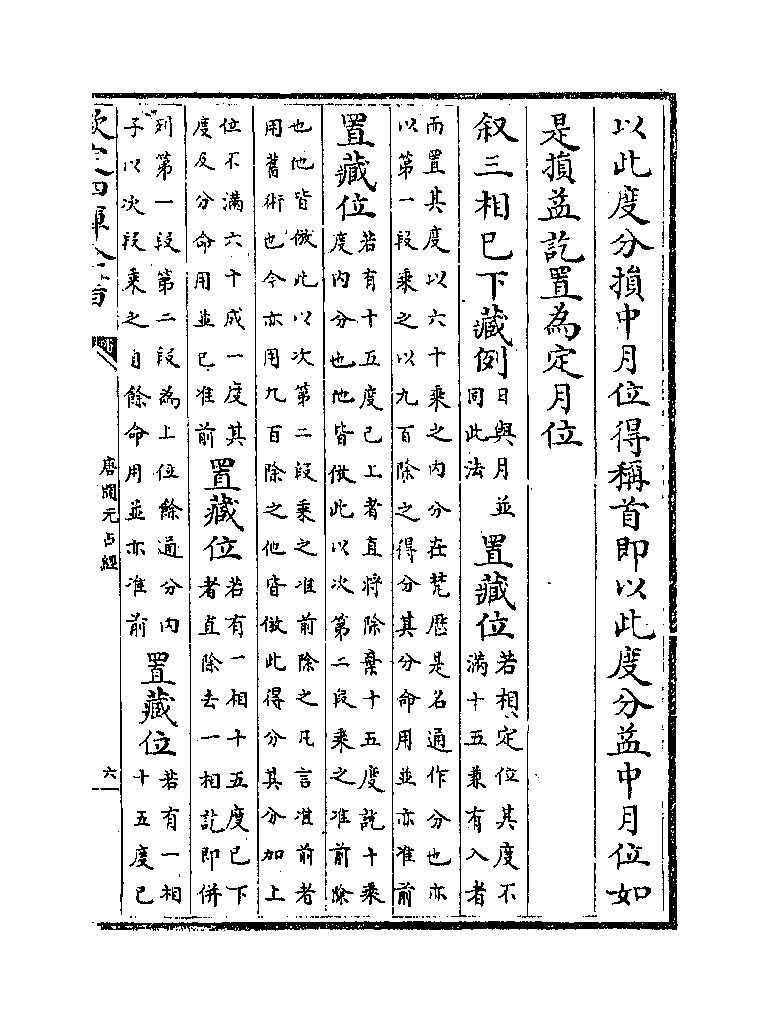 以此度分損中月位得稱首即以此度分益中月位如
是損益訖置為定月位
叙三相已下藏例
日與月並
同此法
置藏位
若相定位其度不
滿十五兼有入者
而置其度以六十乘之内分在梵厯是名通作分也亦
以第一段乘之以九百除之得分其分命用並亦准前
置藏位
若有十五度已上者直將除棄十五度訖十乘
度内分也他皆倣此以次第二段乘之准前除
也他皆倣此以次第二段乘之准前除之凡言准前者
用舊術也今亦用九百除之他皆倣此得分其分加上
位不滿六十成一度其
度及分命用並已准前
置藏位
若有一相十五度已下
者直除去一相訖即併
列第一段第二段為上位餘通分内
子以次段乘之自餘命用並亦准前
置藏位
若有一相
十五度已
欽定四庫全書
唐開元占經
六